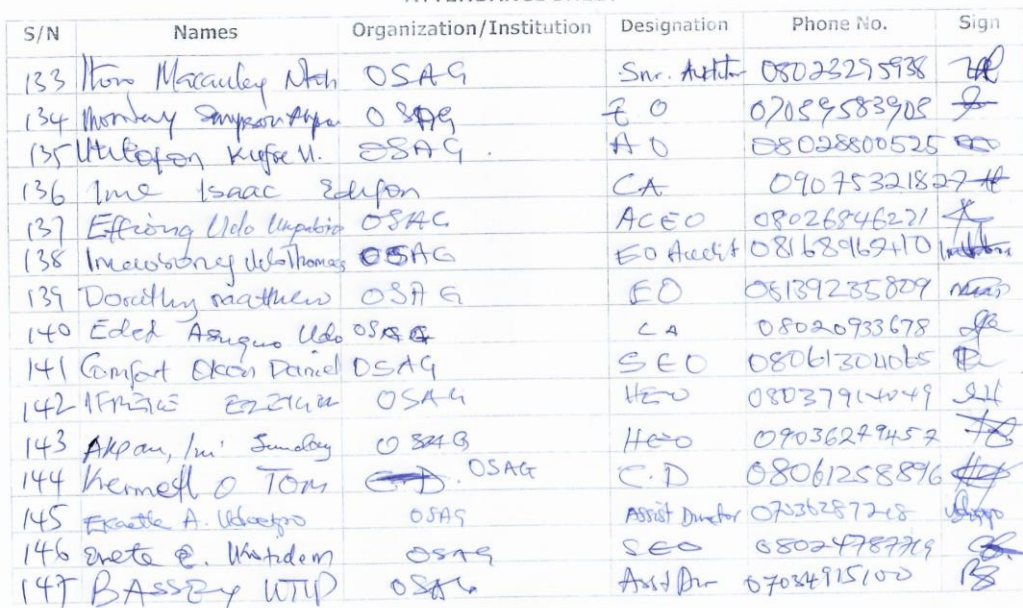 S/N Names Organization/Institution Designation Phone No. Sign
133 Itoro Macauley Ntah OSAG Snr. Auditor 08023295938
134 Monday Sampson Akpa OSAG EO 07059583905
135 Utibeofon Kufre U. OSAG. AO 08028800525
136 Ime Isaac Edifon CA 09075321827
137 Effiong Udo OSAG ACEO 08026846221
138 Udo Thomas OSAG EO Audit
139 Dorothy Matthew OSAG EO 08139235809
140 Eded Asuquo Udo OSAG CA 08020933678
141 Comfort Okon Daniel OSAG SEO 08061304065
142 OSAG HEO 08037914049
143 Akpan, Ini Sunday OSAG HEO 09036279457
144 Kenneth O Tom OSAG C.D 08061258896
145 A. OSAG Assist Director
146 E. OSAG SEO 08024787719
147 BASSEY UTIP OSAG Asst Dir 07034915100